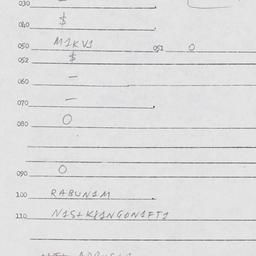 030 –
040 $
050 M1KV1 051 0
052 $
060 –
070 –
080 0
090 0
100 RABUN1M
110 N1S+K81NGON1FT1